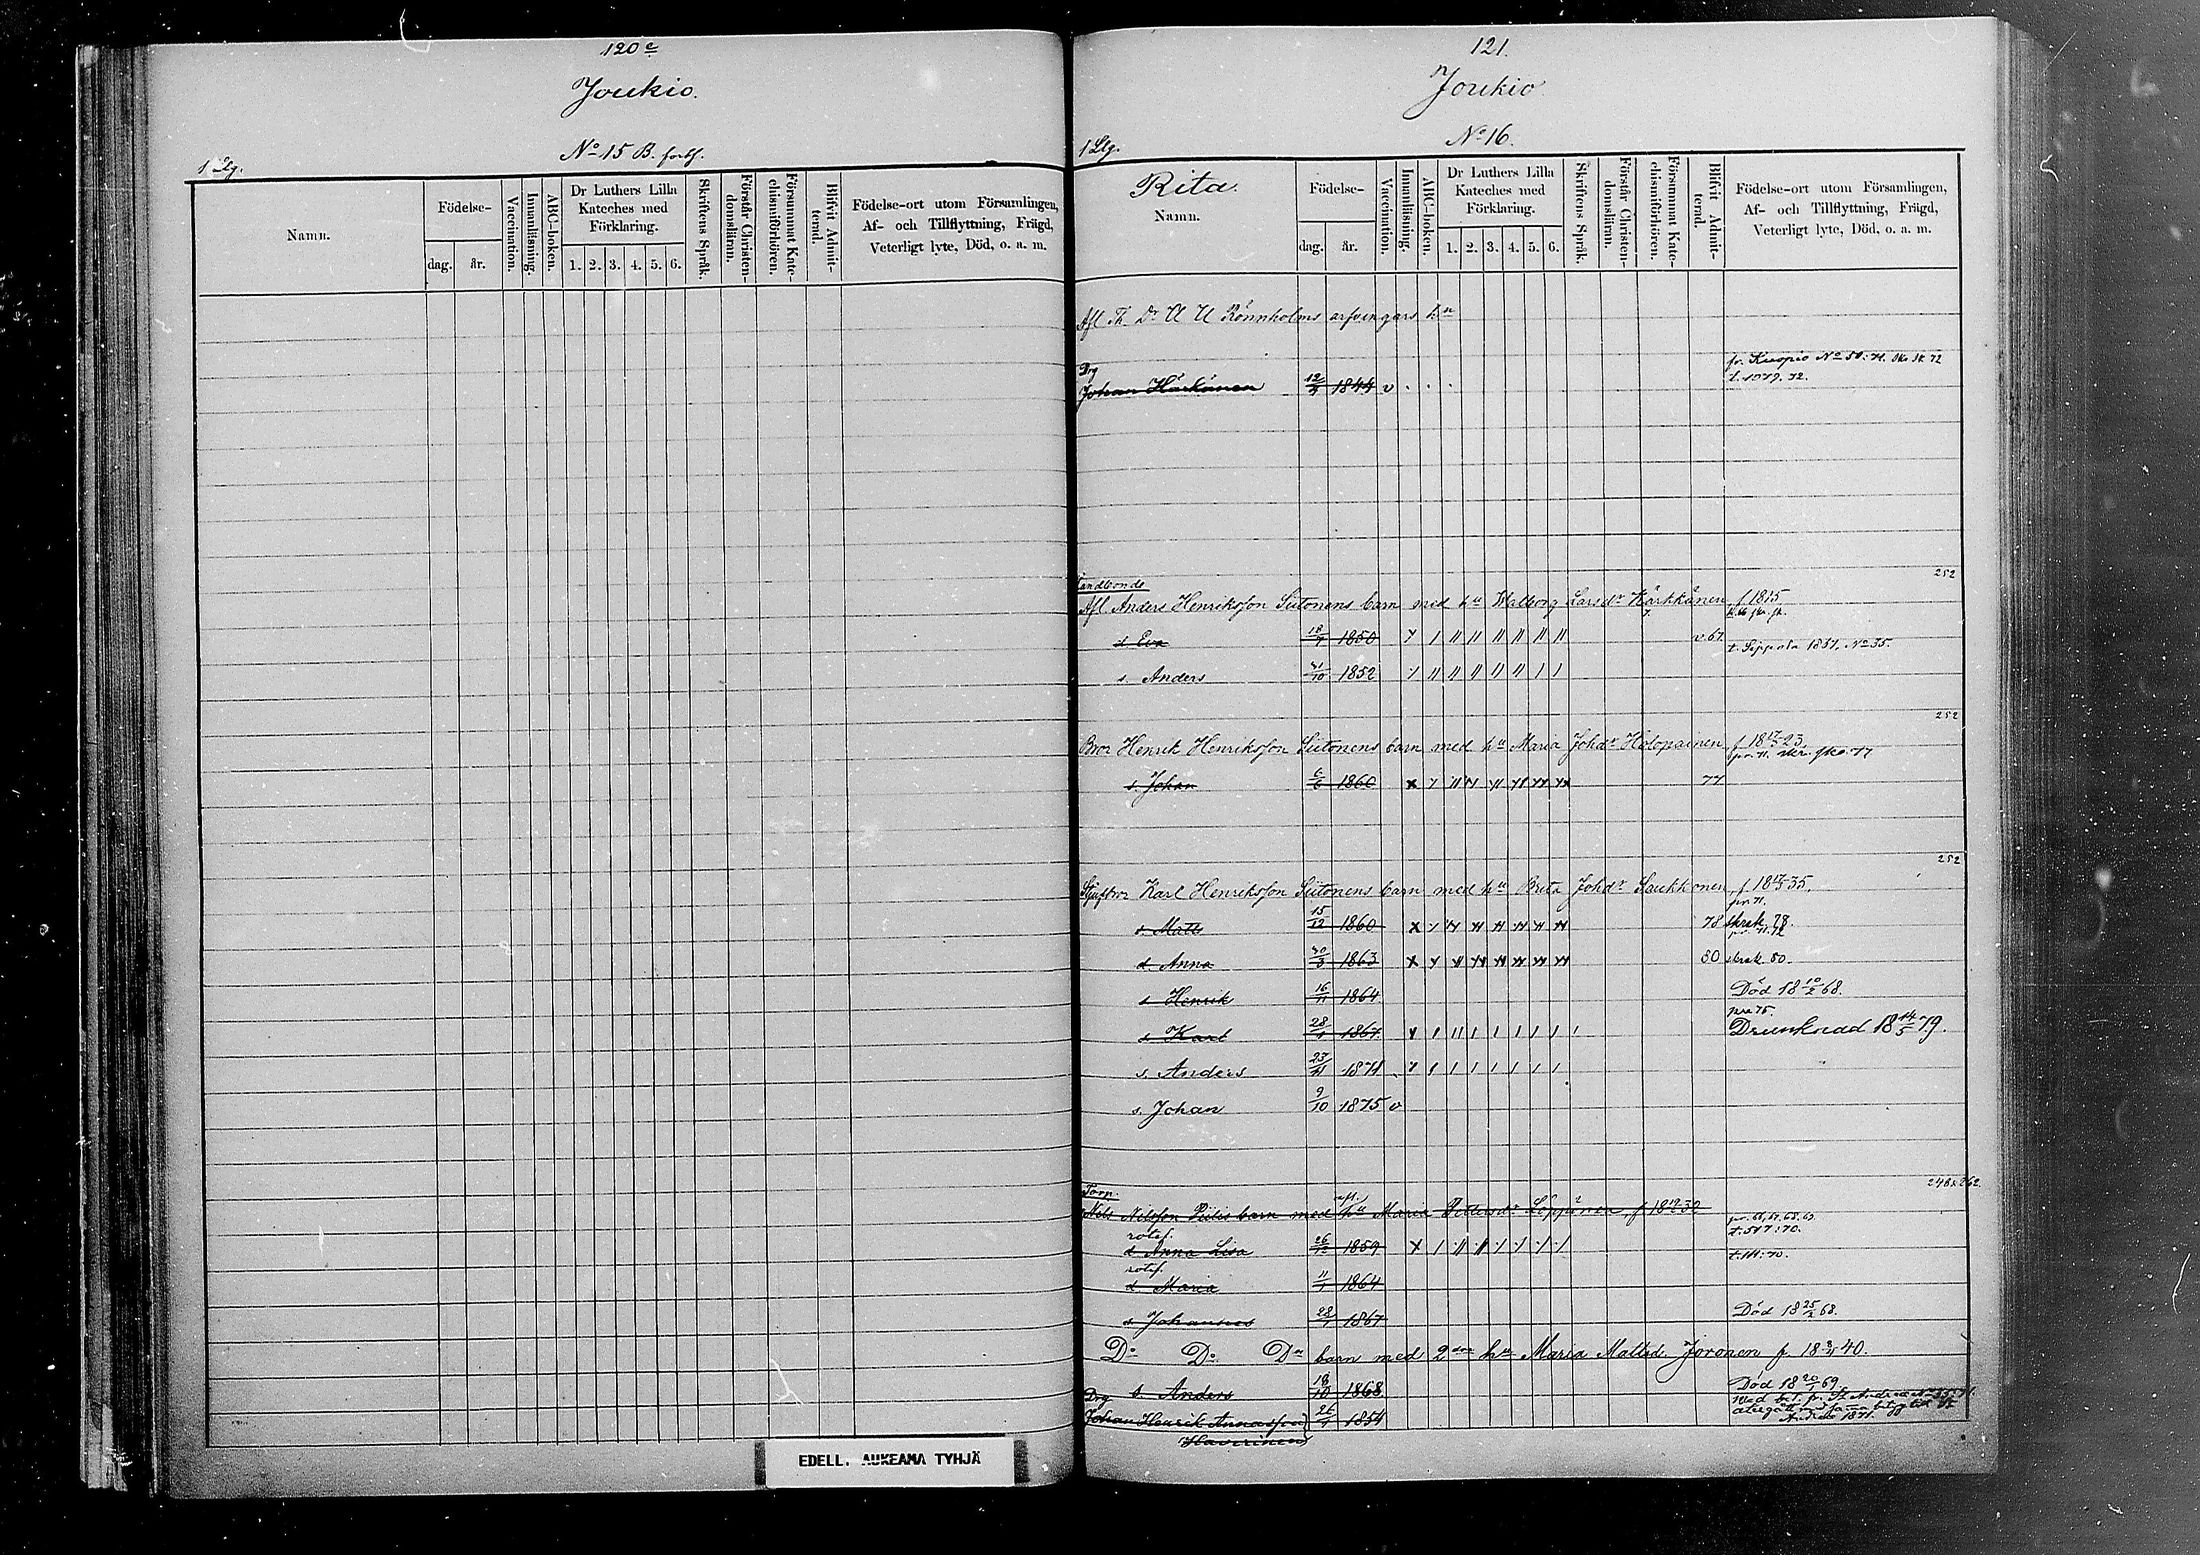 120 c
Joukio.
1 Llg.
No 15 B. forts.
Namn.
Födelse-
dag.
år.
Vaccination.
Innanläsning.
ABC-boken.
Dr Luthers Lilla Kateches med Förklaring.
1. 2. 3. 4. 5. 6.
Skriftens Språk.
Förstår Christen-domsläran.
Försummat Kate-chismiförhören.
Blifvit Admit-terad.
Födelse-ort utom Församlingen,
Af- och Tillflyttning, Frägd,
Veterligt lyte, Död, o. a. m.
EDELL. AUKEAMA TYHJÄ
121.
Joukio
1 Llg.
No 16.
Rita.
Namn.
Födelse-
dag.
år.
Vaccination.
Innanläsning.
ABC-boken.
Dr Luthers Lilla Kateches med Förklaring.
1. 2. 3. 4. 5. 6.
Skriftens Språk.
Förstår Christen-domsläran.
Försummat Kate-chismiförhören.
Blifvit Admit-terad.
Födelse-ort utom Församlingen,
Af- och Tillflyttning, Frägd,
Veterligt lyte, Död, o. a. m.
Afl. Th. Dr A U Rönnholms arfvingars hu
Drg
Johan Härkönen 12/9 1844 v fr. Kuopio No 50:71.
252
Landbonde
Afl Anders Henriksson Siitonens barn med hu Walborg Larsdr Kärkkänen f 1815
d Eva 18/7 1850 v. 67. t. Sippola 1857, No 35.
s. Anders 31/10 1852
252
Bror Henrik Henriksson Siitonens barn med hu Maria Johdr Holopainen f 18 17/5 23
s. Johan 6/6 1860 77
252
Styfbror Karl Henriksson Siitonens barn med hu Brita Johdr Saukkonen f 18 17/5 35.
s. Matts 15/12 1860 78 skrek 78.
d. Anna 30/3 1863 80 skrek 80.
s Henrik 16/11 1864 Död 18 10/2 68.
s Karl 28/1 1867 Drunknad 18 14/5 79.
s. Anders 23/11 1871
s. Johan 9/10 1875 v
248 & 262.
Torp.
Nils Nilsson Piilis barn med hu Maria Pettersdr Löppönen, f 18 19/2 32
t. 517:70.
rotef.
d Anna Lisa 26/12 1859 t. 111:70.
rotef.
d Maria 11/1 1864
s Johannes 28/1 1867 Död 18 25/2 68.
Do Do Do barn med 2dra hu Maria Mattsd. Joronen f. 18 3/5 40.
s. Anders 18/10 1868 Död 18 20/1 69.
Drg
Johan Henrik Annasson 26/1 1854
(Haverinen)
Andreæ 1871.